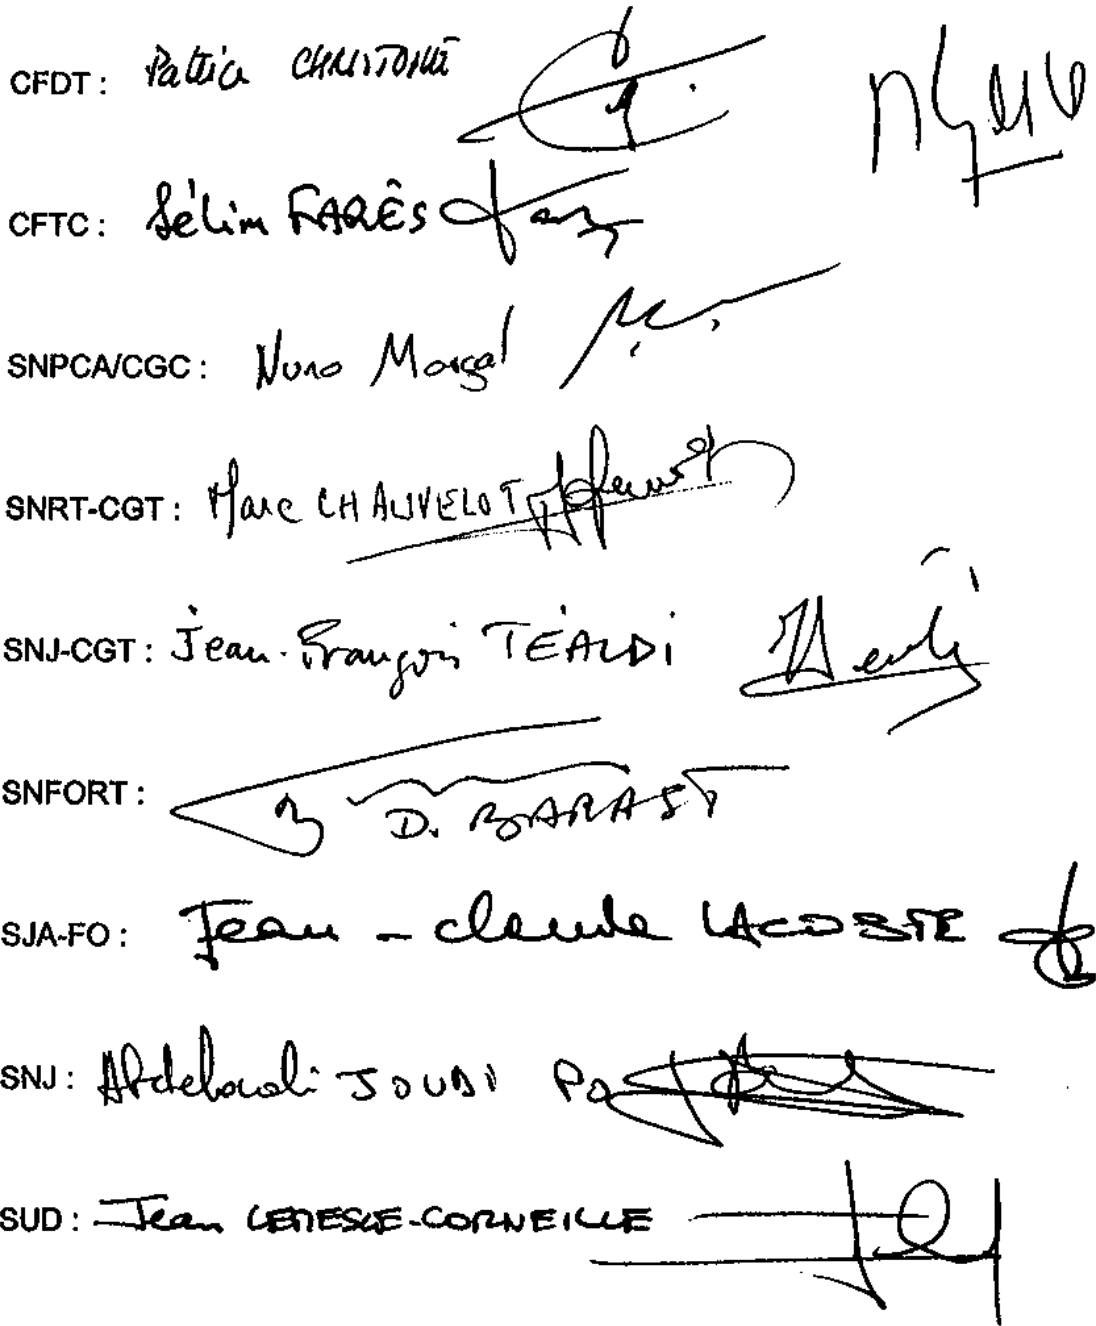 CFDT : Patrice CHRISTOPHE
CFTC : Sélim FARÊS
SNPCA/CGC : Nuno Marçal
SNRT-CGT : Marc CHAUVELOT
SNJ-CGT : Jean-François TÉALDI
SNFORT : D. BARAST
SJA-FO : Jean-claude LACOSTE
SNJ : JOUDI Po
SUD : Jean CORNEILLE